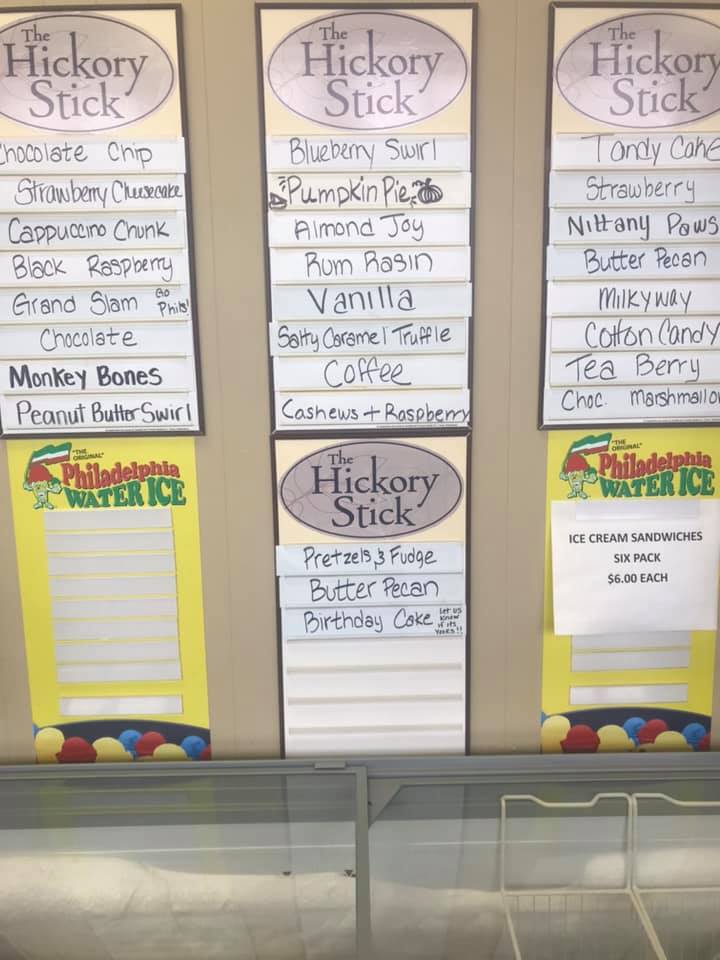 The
Hickory
Stick
Chocolate Chip
Strawberry Cheesecake
Cappuccino Chunk
Black Raspberry
Grand Slam Go Phils!
Chocolate
Monkey Bones
Peanut Butter Swirl
"THE ORIGINAL"
Philadelphia
WATER ICE
The
Hickory
Stick
Blueberry Swirl
Pumpkin Pie
Almond Joy
Rum Rasin
Vanilla
Salty Caramel Truffle
Coffee
Cashews + Raspberry
The
Hickory
Stick
Pretzels & Fudge
Butter Pecan
Birthday Cake Let us know if its yours!!
The
Hickory
Stick
Tandy Cake
Strawberry
Nittany Paws
Butter Pecan
Milkyway
Cotton Candy
Tea Berry
Choc. Marshmallo
"THE ORIGINAL"
Philadelphia
WATER ICE
ICE CREAM SANDWICHES
SIX PACK
$6.00 EACH